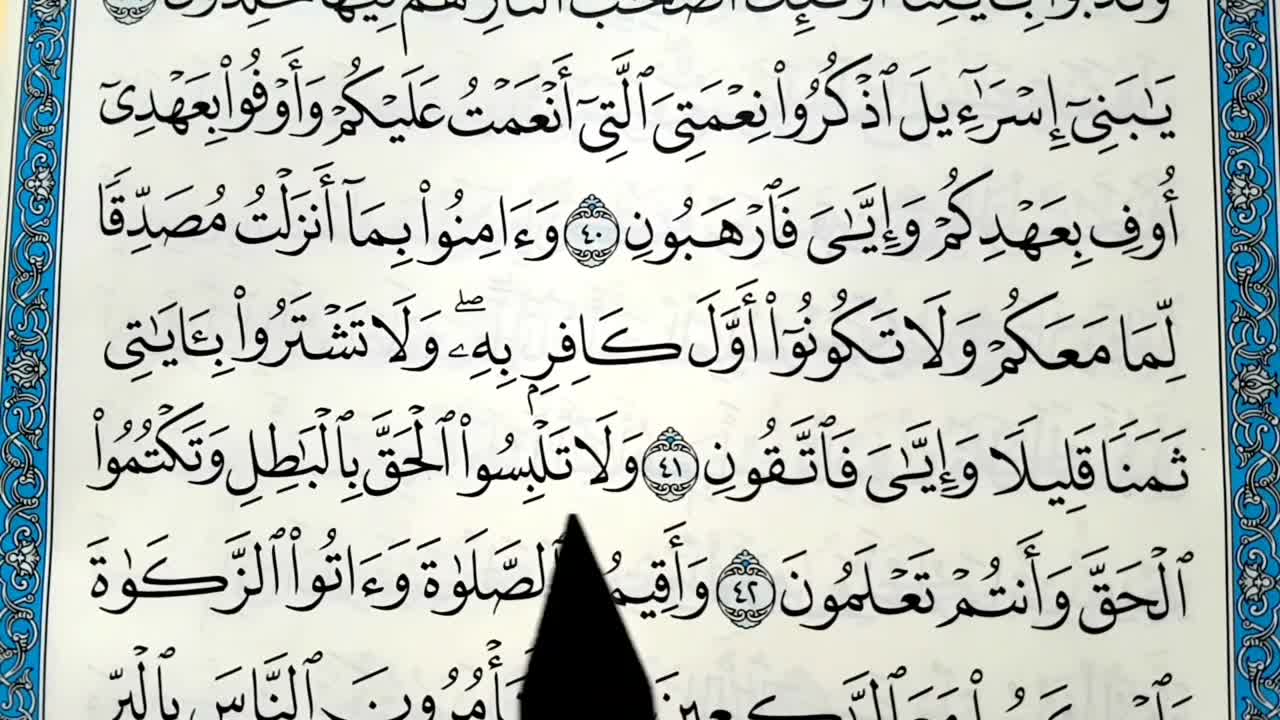 يَـٰبَنِىٓ إِسْرَٰٓءِيلَ ٱذْكُرُوا۟ نِعْمَتِىَ ٱلَّتِىٓ أَنْعَمْتُ عَلَيْكُمْ وَأَوْفُوا۟ بِعَهْدِىٓ
أُوفِ بِعَهْدِكُمْ وَإِيَّـٰىَ فَٱرْهَبُونِ ٤٠ وَءَامِنُوا۟ بِمَآ أَنزَلْتُ مُصَدِّقًا
لِّمَا مَعَكُمْ وَلَا تَكُونُوٓا۟ أَوَّلَ كَافِرٍۭ بِهِۦ ۖ وَلَا تَشْتَرُوا۟ بِـَٔايَـٰتِى
ثَمَنًا قَلِيلًا وَإِيَّـٰىَ فَٱتَّقُونِ ٤١ وَلَا تَلْبِسُوا۟ ٱلْحَقَّ بِٱلْبَـٰطِلِ وَتَكْتُمُوا۟
ٱلْحَقَّ وَأَنتُمْ تَعْلَمُونَ ٤٢ ٱلصَّلَوٰةَ وَءَاتُوا۟ ٱلزَّكَوٰةَ
ٱلنَّاسَ بِٱلْبِرِّ